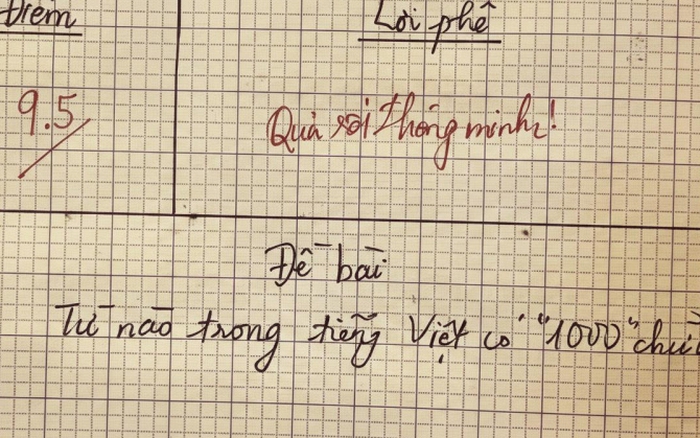 Điểm
Lời phê
9.5
Quả rồi thông minh!
Đề bài
Từ nào trong tiếng Việt có "1000" chữ